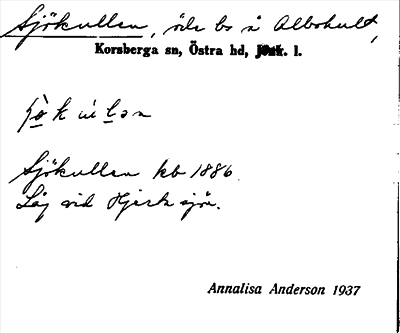 Sjökullen, öde bs å Albohult,
Korsberga sn, Östra hd, Jönk. l.
Sjökullen kb 1886.
Låg vid Hjertasjön.
Annalisa Anderson 1937